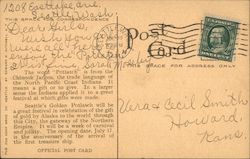 1208 Eastlake Ave.
Seattle Wash.
THIS SPACE FOR CORRESPONDENCE
Dear Girls.
Post
Card
SPACE FOR ADDRESS ONLY
The word "Potlatch" is from the
Chinook Jargon, the trade language of
the North Pacific Coast Indians. It
means a gift or to give. In a larger
sense the Indians applied it to a great
festival at which gifts were made.
Seattle's Golden Potlatch will be
a great festival in celebration of the gift
of gold by Alaska to the world through
this City, the gateway of the Northern
Empire. It will be a week of carnival
and jollity. The opening date, July 17,
is the anniversary of the arrival of the
first treasure ship.
OFFICIAL POST CARD
Vera & Cecil Smith
Howard,
Kans.